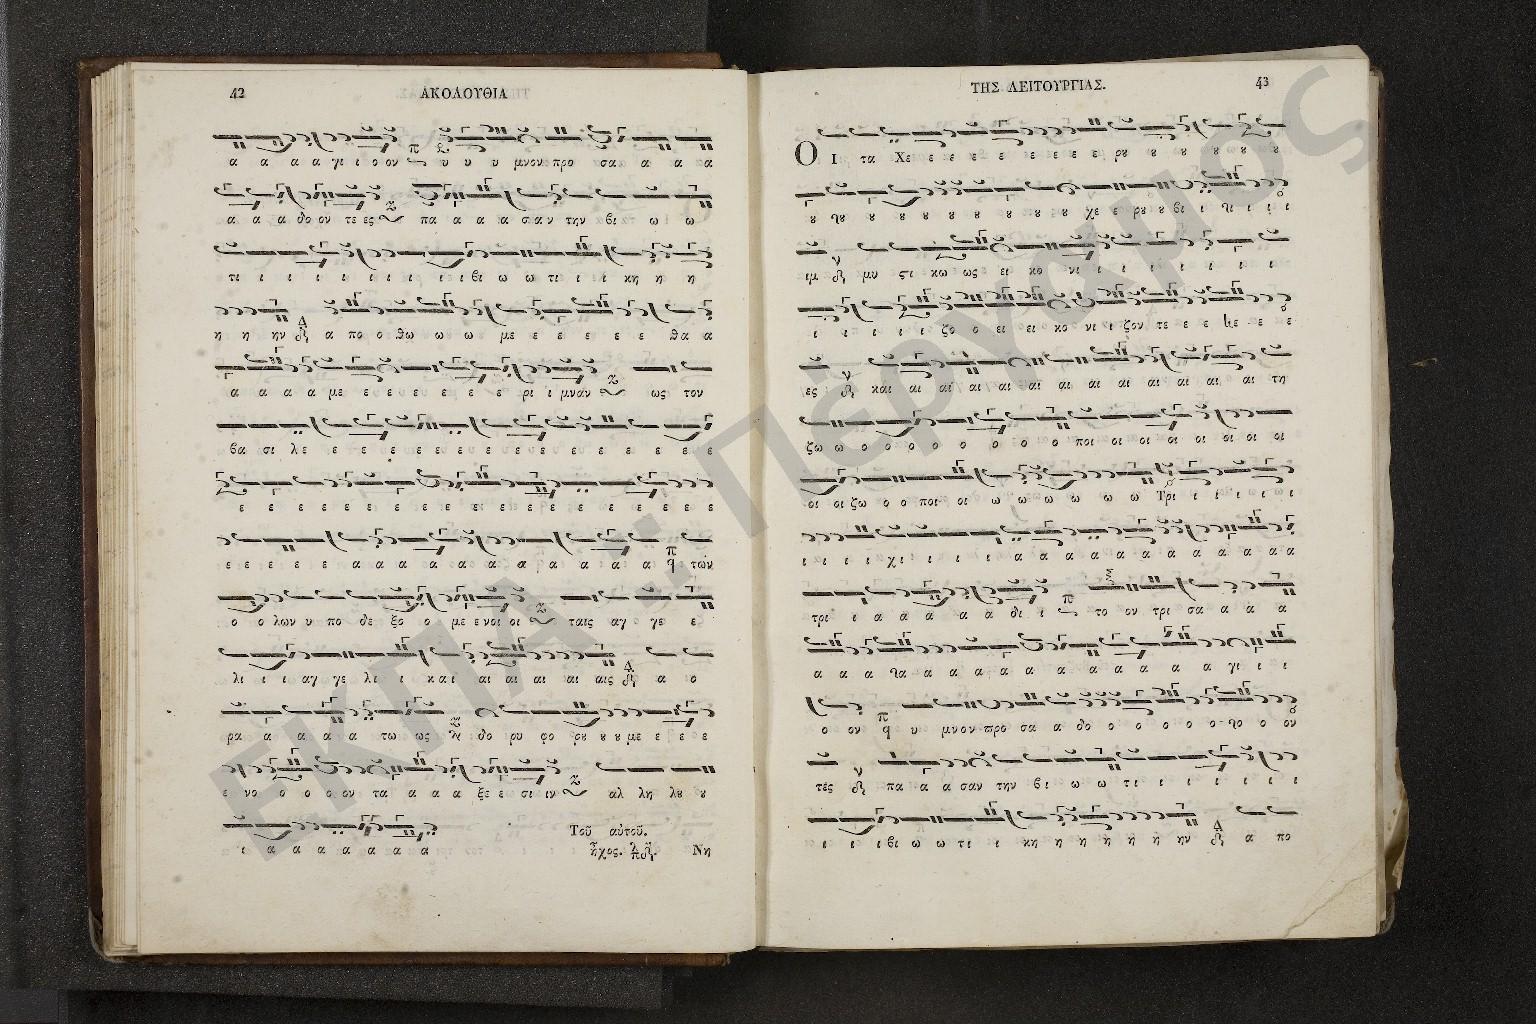 42
ΑΚΟΛΟΥΘΙΑ
α α α α γι ι ο ον υ υ υ μνον προ σα α α α
α α α δο ον τε ες πα α α α σαν την βι ω ω
τι ι ι ι ι ι ι ι ι βι ω ω τι ι ι κη η η
η η ην α πο ο θω ω ω με ε ε ε ε ε θα α
α α α α με ε ε ε ε ε ε ε ε ρι ι μναν ως τον
βα σι λε ε ε ε ε ε ε ε ε ε ε ε ε ε ε ε ε
ε ε ε ε ε ε ε ε ε ε ε ε ε ε ε ε ε
ε ε ε ε ε α α α α α α α α α α α τών
ο ο λων υ πο δε ξο ο με ε νοι οι ταις αγ γε ε
λι ι ι αγ γε λι ι και αι αι αι αι αις α ο
ρα α α α α τω ως δο ρυ φο ρου ου ου με ε ε ε
ε νο ο ο ο ον τα α α α ξε ε σι ιν αλ λη λου ου
ι α α α α α α α
Τοῦ αὐτοῦ.
ἦχος. Νη
ΤΗΣ ΛΕΙΤΟΥΡΓΙΑΣ.
43
Οι τα Χε ε ε ε ε ε ε ε ε ρου ου ου ου ου ου ου
χε ε ρου ου βι ι
μυ στι κω ως ει κο νι ι ι ι ι ι ι ι
ι ι ι ι ι ζο ο ει ει κο νι ι ζον τε ε ε ε ε
ες και αι αι αι αι αι αι αι αι αι αι αι αι τη
ζω ω ο ο ο ο ο ο ο ο ποι οι οι οι οι οι οι οι
οι οι ζω ο ο ποι οι ω ω ω ω ω ω Τρι ι ι ι ι ι
ι ι ι ι χι ι ι ι α α α α α α α α α α α
τρι ι α α α α α δι ι το ον τρι σα α α α
α α α α α α α α α α α α α γι ι ι
ο ον υ μνον προ σα α δο ο ο ο ο ο ο ον
τες πα α α σαν την βι ω ω τι ι ι ι ι ι
ι ι ι βι ω ω τι ι κη η η η η η ην α πο
ΕΚΠΑ :: ΠΕΡΓΑΜΟΣ